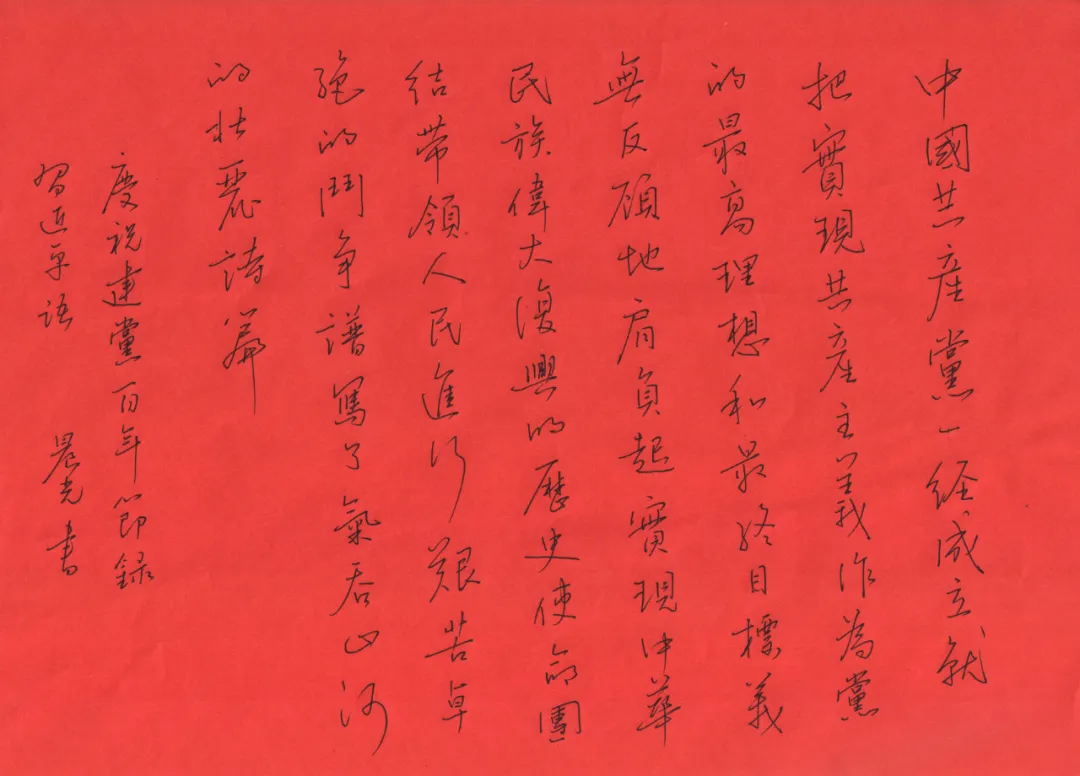 中國共産黨一经成立就
把實現共産主義作為黨
的最高理想和最终目標義
無反顧地肩負起實現中華
民族偉大復興的歷史使命團
结帶領人民進行艱苦卓
绝的鬥争譜寫了氣吞山河
的壮麗詩篇
慶祝建黨百年節録
習近平语 晨光書